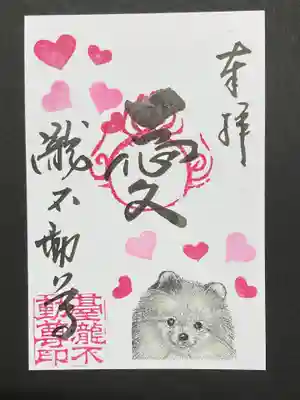 奉拝
愛
瀧不動尊
龍不
動尊印